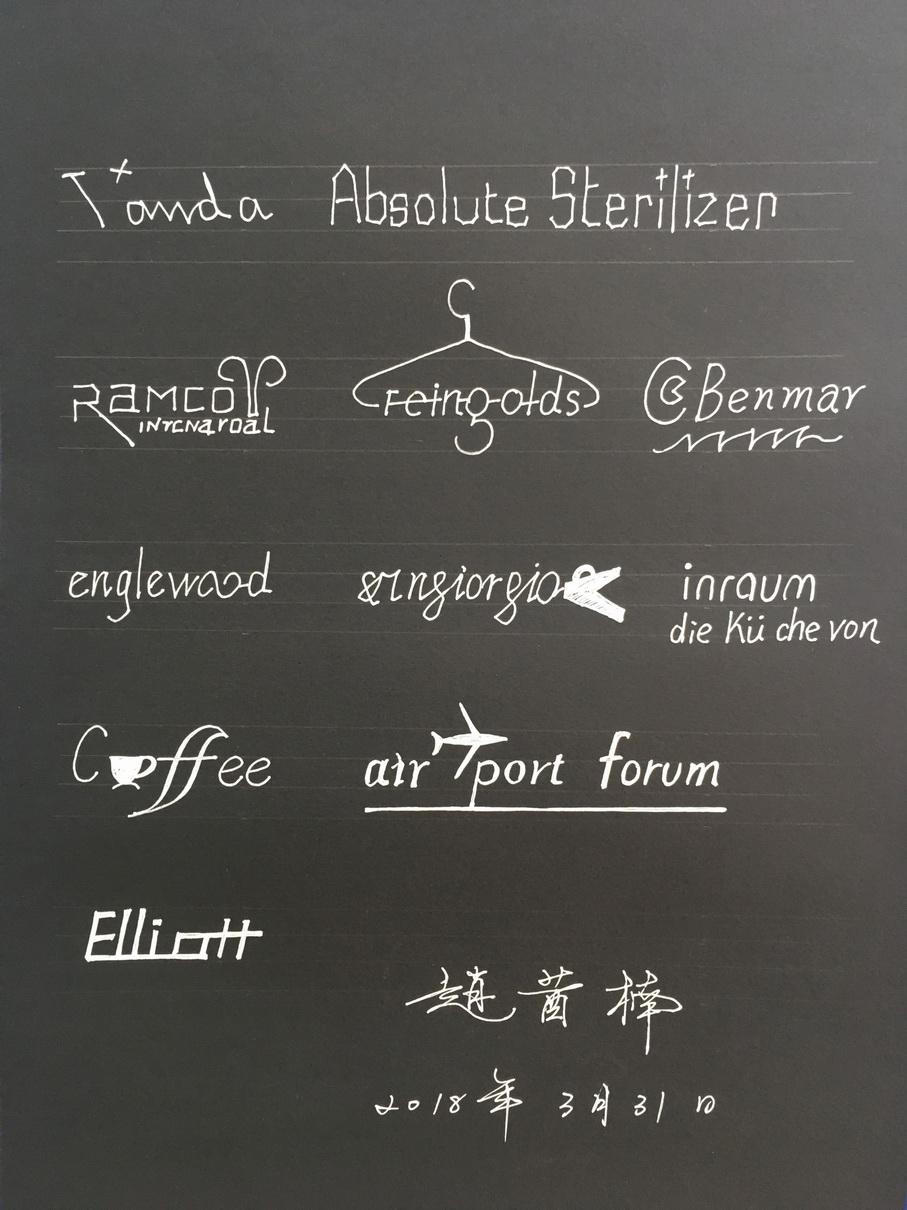 Tanda Absolute Sterilizer
RAMCO feingolds Benmar
INTCNaroaL
englewood sangiorgio inraum
die Kü che von
Coffee air port forum
Elliott
趙 楠
2018年 3月31日